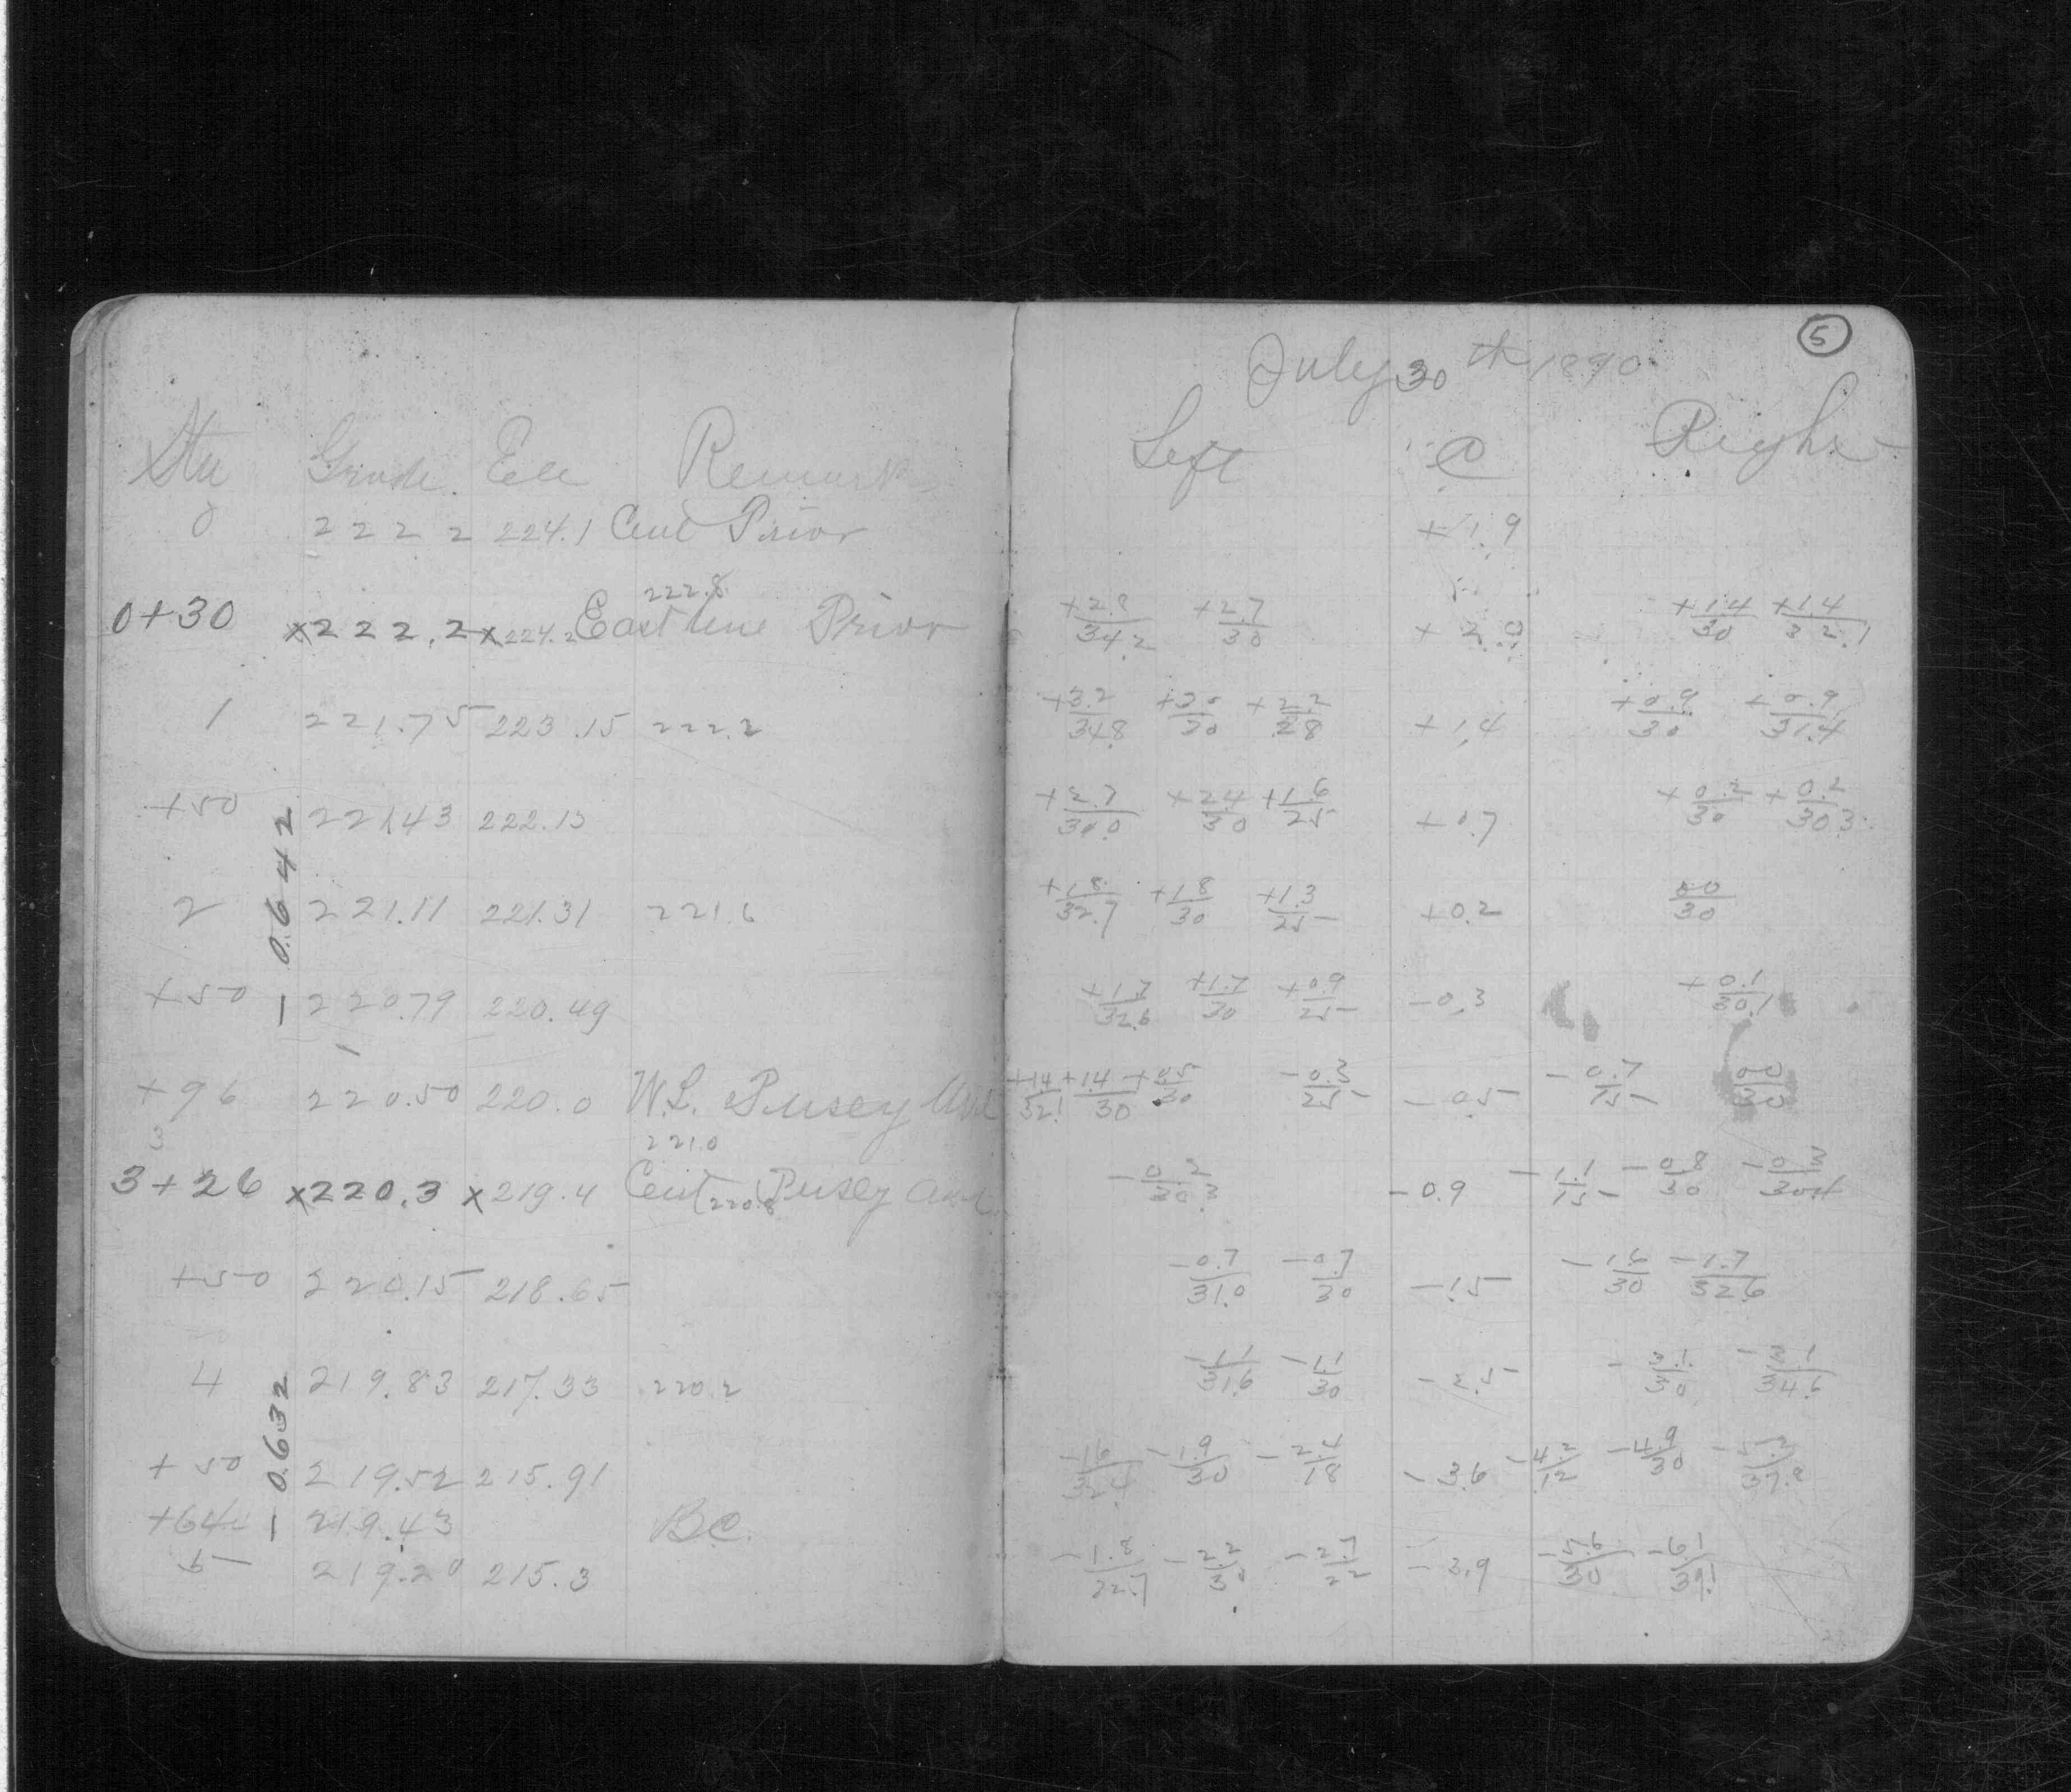 5
July 30th 1890
Sta Grade Ele Remarks Left C Right
0 222 2 224.1 Cent Prior +1.9
222.8
0+30 x222.2 x224.2 East line Prior +2.8/34.2 +2.7/30 +2.0 +1.4/30 +1.4/32.1
1 221.75 223.15 222.2 +3.2/34.8 +3.0/30 +2.2/28 +1.4 +0.9/30 +0.9/31.4
+50 221.43 222.13 +2.7/34.0 +2.4/30 +1.6/25 +0.7 +0.2/30 +0.2/30.3
- 0.642
2 221.11 221.31 221.6 +1.8/32.7 +1.8/30 +1.3/25 +0.2 00/30
+50 220.79 220.49 +1.7/32.6 +1.7/30 +0.9/25 -0.3 +0.1/30.1
+96 220.50 220.0 W.L. Pusey Ave +1.4/32.1 +1.4/30 +0.5/30 -0.3/25 -0.5 -0.7/15 00/30
221.0
3+26 x220.3 x219.4 Cent Pusey Ave -0.2/30.3 -0.9 -1.1/15 -0.8/30 -0.3/30.4
220.8
+50 220.15 218.65 -0.7/31.0 -0.7/30 -1.5 -1.6/30 -1.7/32.6
4 219.83 217.33 220.2 -1.1/31.6 -1.1/30 -2.5 -3.1/30 -3.1/34.6
- 0.632
+50 219.52 215.91 -1.6/32.4 -1.9/30 -2.4/18 -3.6 -4.2/12 -4.9/30 -5.2/37.8
+64 219.43 B.C.
5 219.20 215.3 -1.8/32.7 -2.2/30 -2.7/22 -3.9 /30 -6.1/39.1